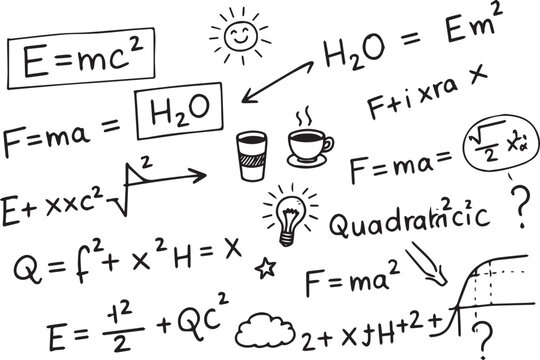 E=mc²
H₂O = Em²
F=ma = H₂O
F+ixra x
F=ma= √/2 x²
E+xxc²√²
Quadraticic ?
Q=f²+x²H=x
F=ma²
E= +2/2 +QC²
2+x+H+2+
?